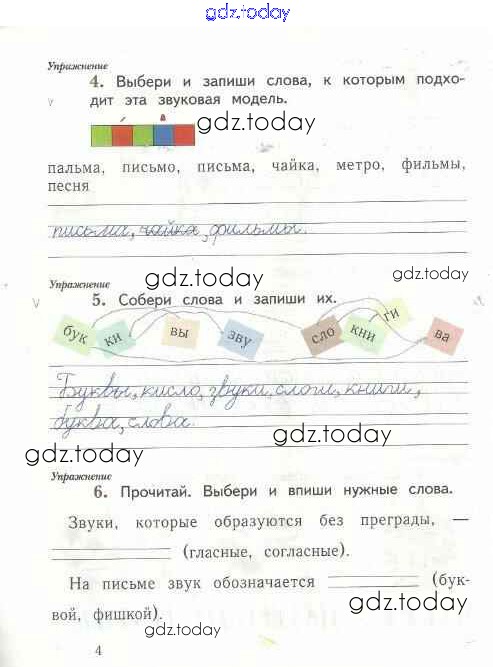 gdz.today
Упражнение
4. Выбери и запиши слова, к которым подхо-
дит эта звуковая модель.
gdz.today
пальма, письмо, письма, чайка, метро, фильмы,
песня
письма, чайка, фильмы.
gdz.today
gdz.today
Упражнение
5. Собери слова и запиши их.
бук ки вы зву сло кни ги ва
Буквы, кисло, звуки, слоги, книги,
буква, слова.
gdz.today
gdz.today
Упражнение
6. Прочитай. Выбери и впиши нужные слова.
Звуки, которые образуются без преграды, —
(гласные, согласные).
На письме звук обозначается (бук-
вой, фишкой).
gdz.today
gdz.today
4